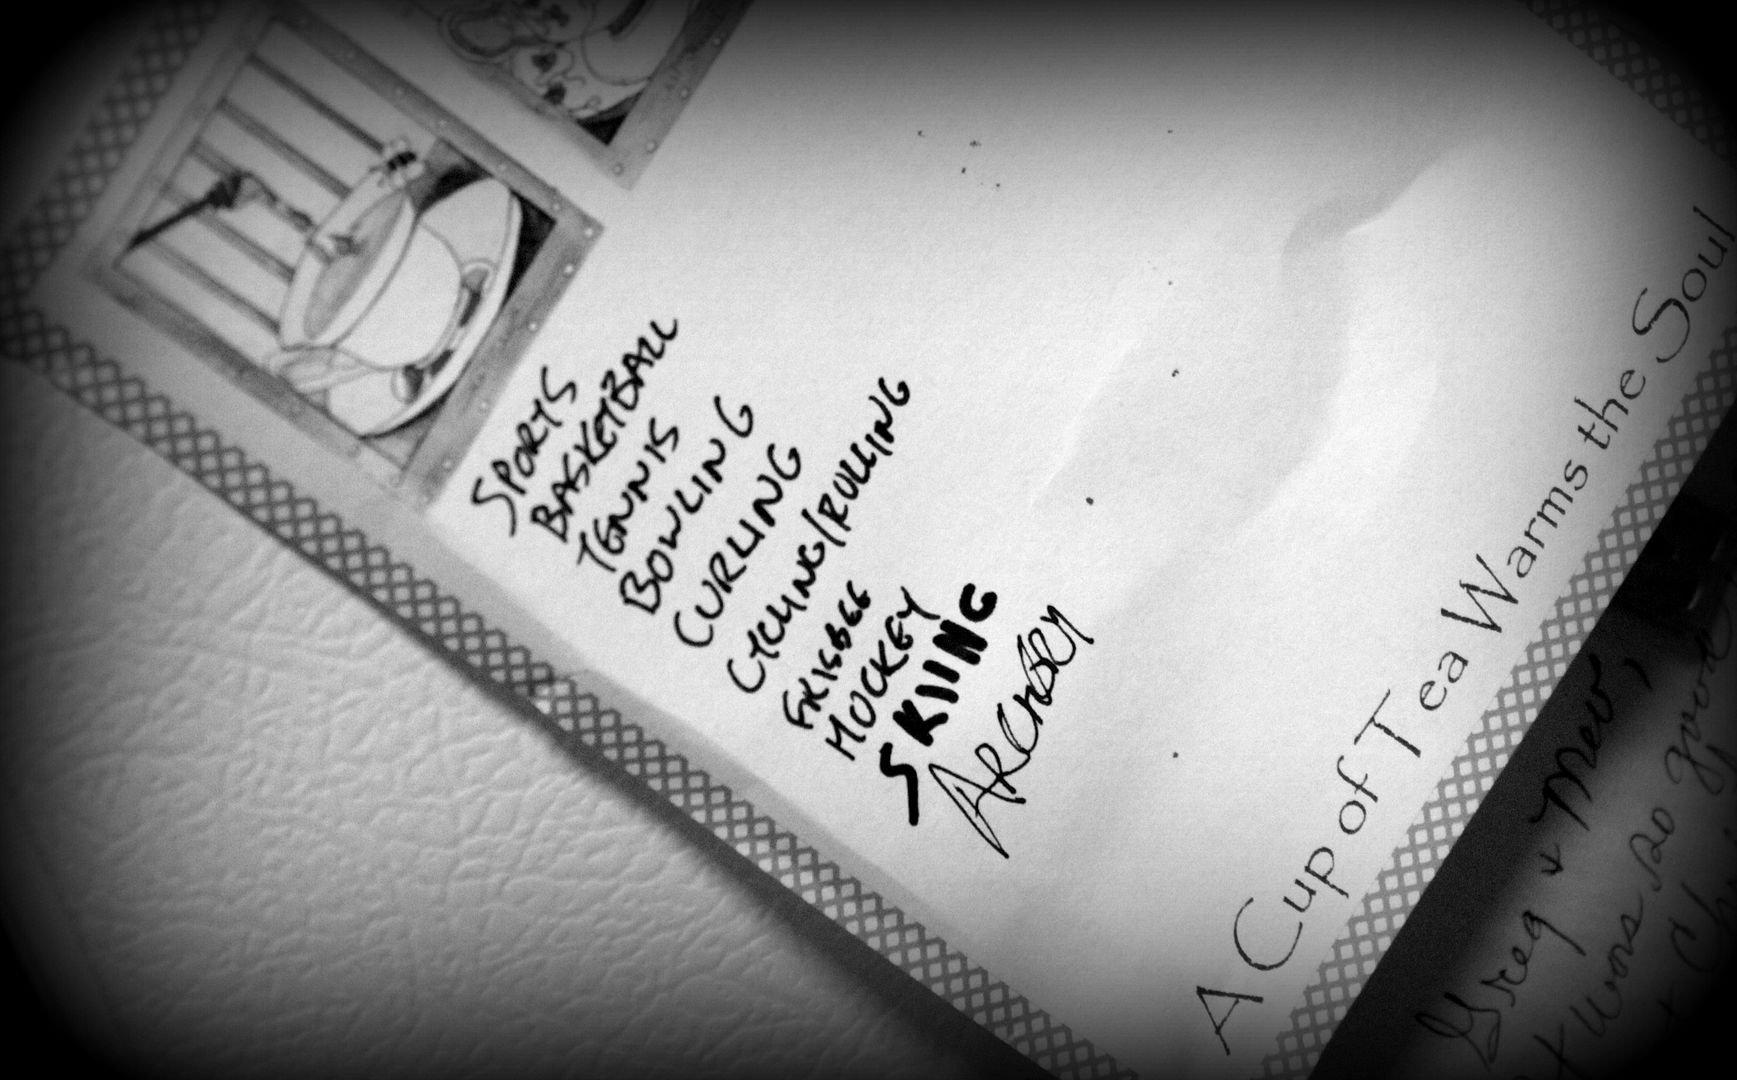 SPORTS
BASKETBALL
TENNIS
BOWLING
CURLING
CYCLING/ROLLING
FRISBEE
HOCKEY
SKIING
ARCHERY
A Cup of Tea Warms the Soul
Greg + Mev,
was so good